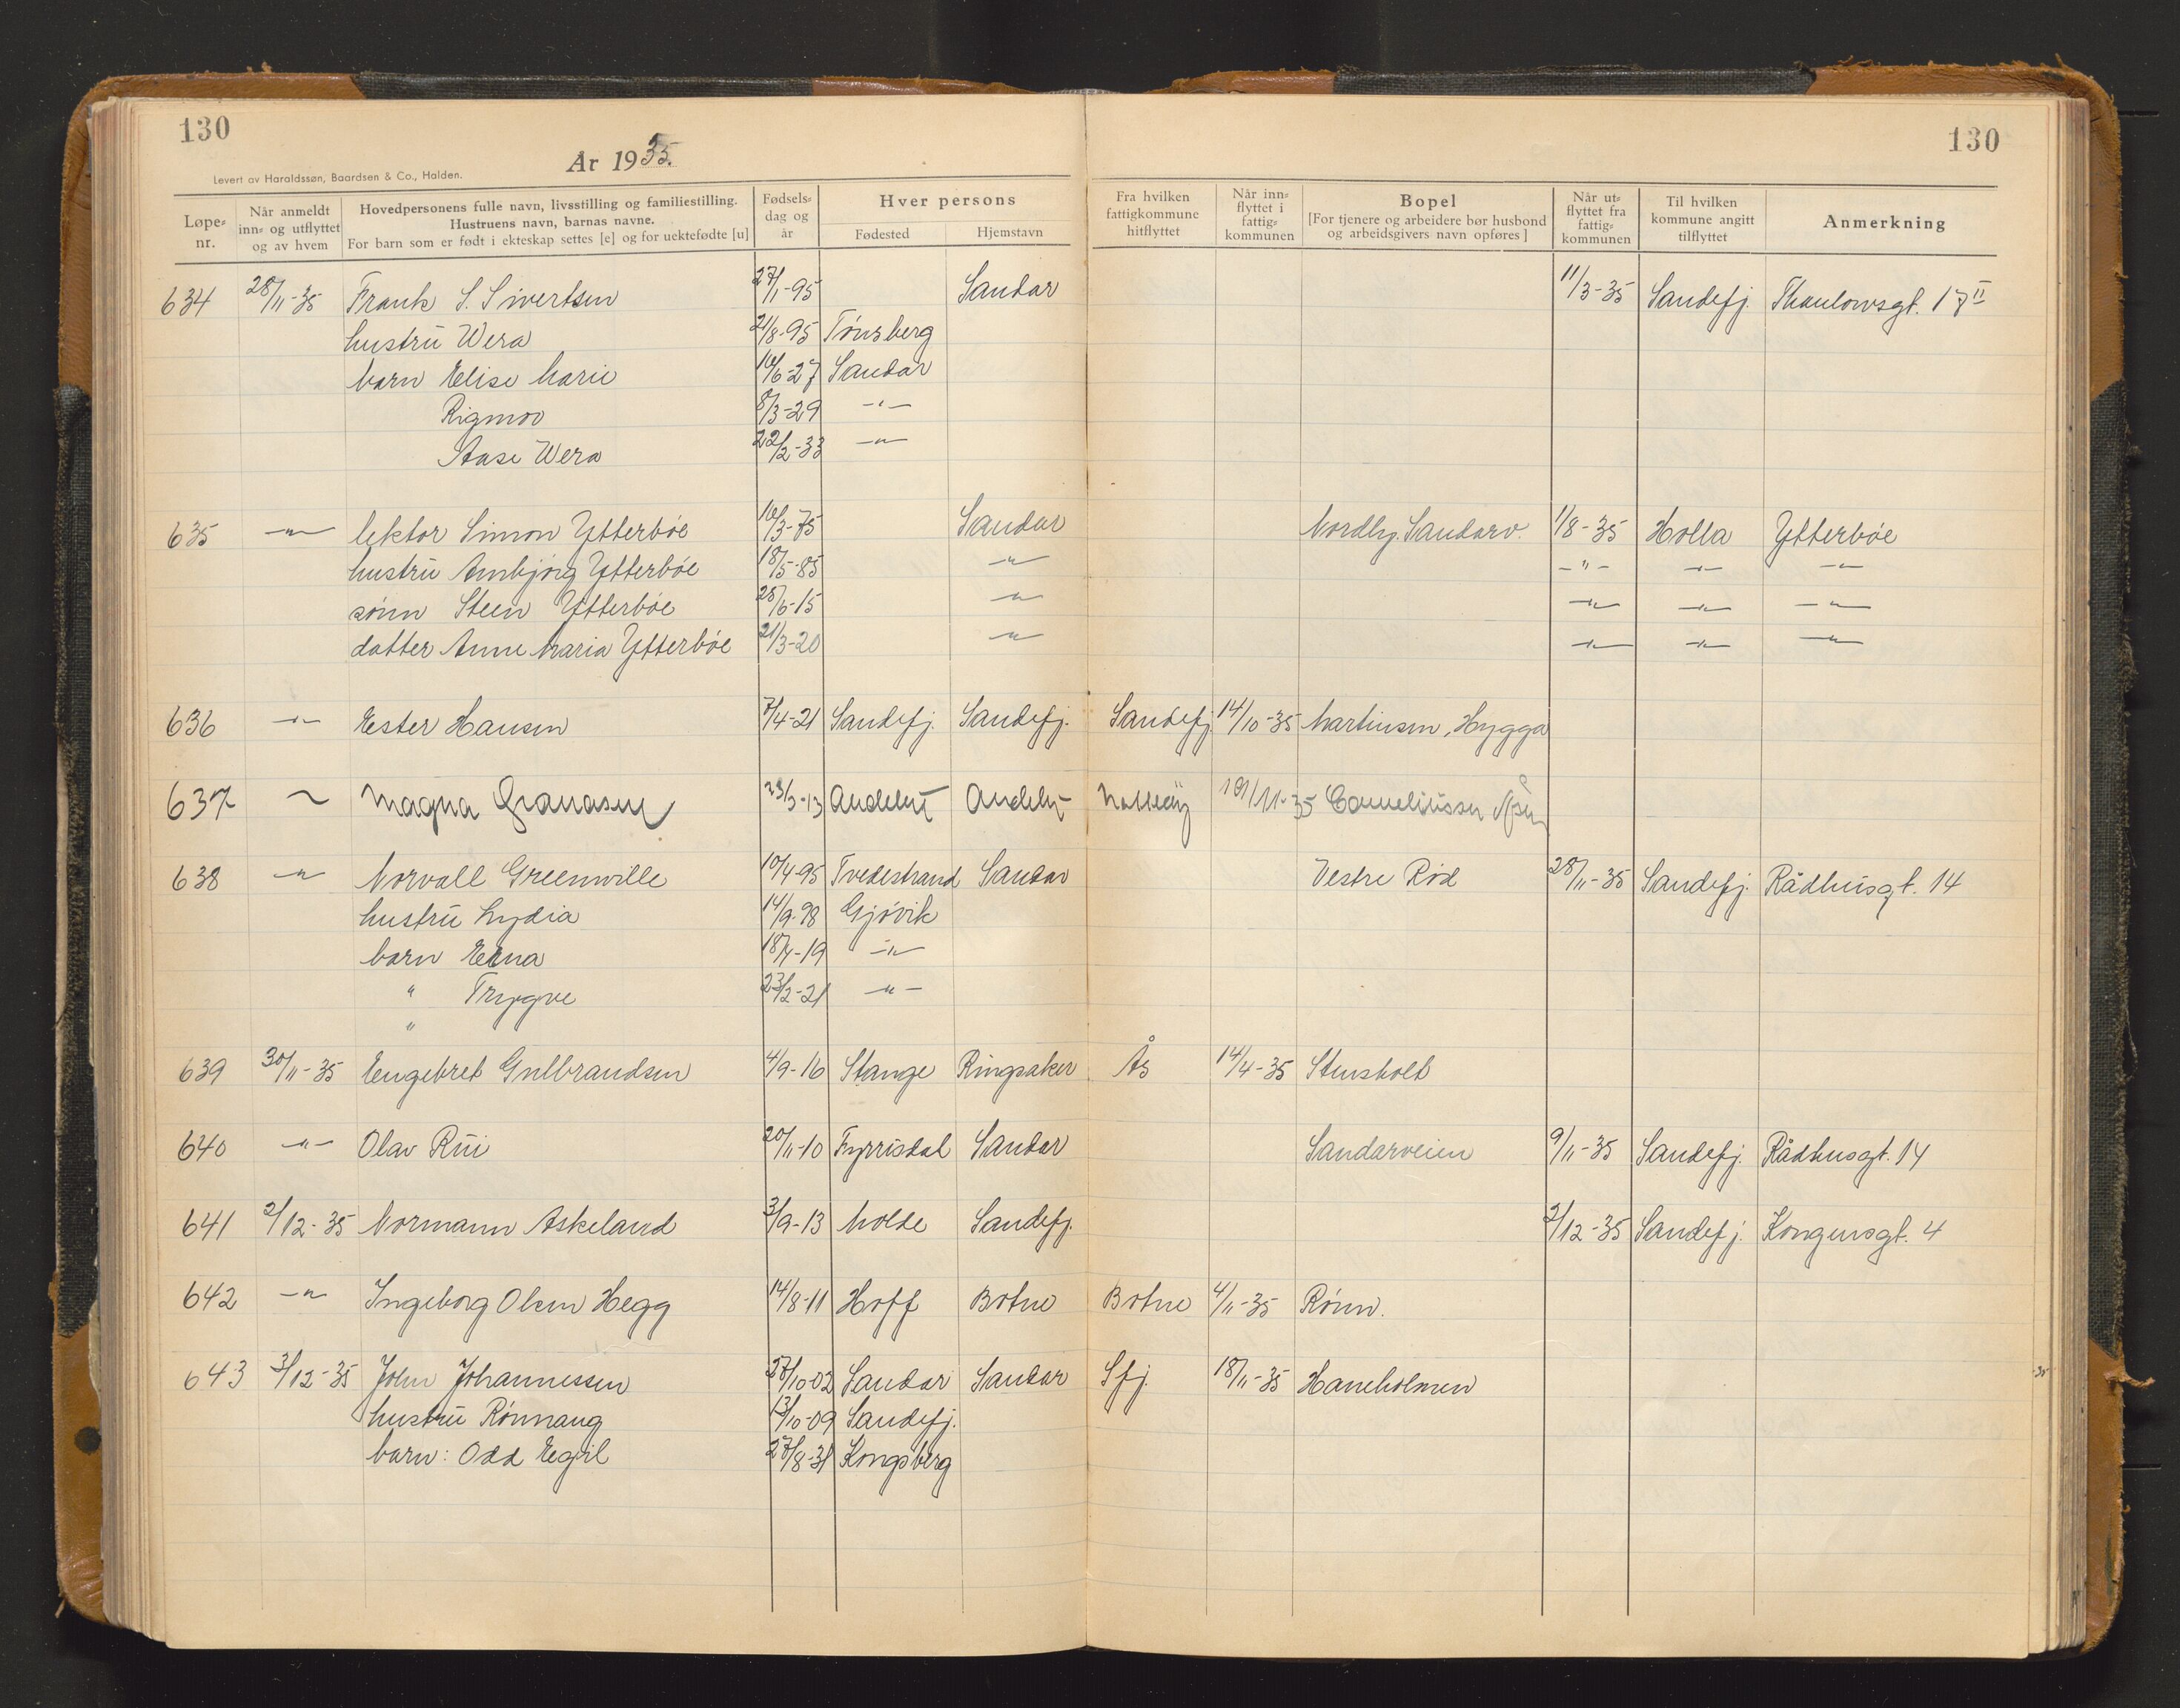 130
År 1935.
Levert av Haraldssøn, Baardsen & Co., Halden.
130
Løpe-nr. Når anmeldt inn- og utflyttet og av hvem Hovedpersonens fulle navn, livsstilling og familiestilling. Hustruens navn, barnas navne. For barn som er født i ekteskap settes [e] og for uektefødte [u] Fødsels-dag og år Hver persons Fødested Hjemstavn Fra hvilken fattigkommune hitflyttet Når inn-flyttet i fattig-kommunen Bopel [For tjenere og arbeidere bør husbond og arbeidsgivers navn opføres] Når ut-flyttet fra fattig-kommunen Til hvilken kommune angitt tilflyttet Anmerkning
634 28/11-35 Frank S. Sivertsen 27/1-95 Sandar 11/3-35 Sandefj. Thaulowsgt. 17 II
hustru Wera 21/8-95 Tønsberg
barn Elise Marie 16/6-27 Sandar
Rigmor 8/3-29 -"-
Aase Wera 22/2-33 -"-
635 -"- lektor Simon Ytterbøe 16/3-75 Sandar Nordby. Sandarv. 1/8-35 Holla Ytterbøe
hustru Ambjørg Ytterbøe 18/5-85 -"- -"- -"- -"-
sønn Steen Ytterbøe 28/6-15 -"- -"- -"- -"-
datter Anne Maria Ytterbøe 21/3-20 -"- -"- -"- -"-
636 -"- Ester Hansen 7/4-21 Sandefj. Sandefj. Sandefj. 14/10-35 Martinsen, Hygga
637 Magna 23/3-13 Andebu Andebu 19/11-35 Corneliussen
638 -"- Norvall Greenwille 10/4-95 Tvedestrand Sandar Vestre Rød 28/11-35 Sandefj. Rådhusgt. 14
hustru Lydia 14/9-98 Gjøvik
barn Erna 18/4-19 -"-
" Trygve 23/2-21 -"-
"
639 30/11-35 Engebret Gulbrandsen 4/9-16 Stange Ringsaker Ås 14/4-35 Stensholt
640 -"- Olav Rui 20/11-10 Fyrrisdal Sandar Sandarveien 9/11-35 Sandefj. Rådhusgt. 14
641 2/12-35 Normann Askeland 3/9-13 Molde Sandefj. 2/12-35 Sandefj. Kongensgt. 4
642 -"- Ingeborg Olsen Hegg 14/8-11 Hoff Botne Botne 4/11-35 Rønn.
643 3/12-35 John Johannessen 27/10-02 Sandar Sandar Sfj. 18/11-35 Haneholmen
hustru Rønnaug 13/10-09 Sandefj.
barn: Odd Egil 27/8-31 Kongsberg